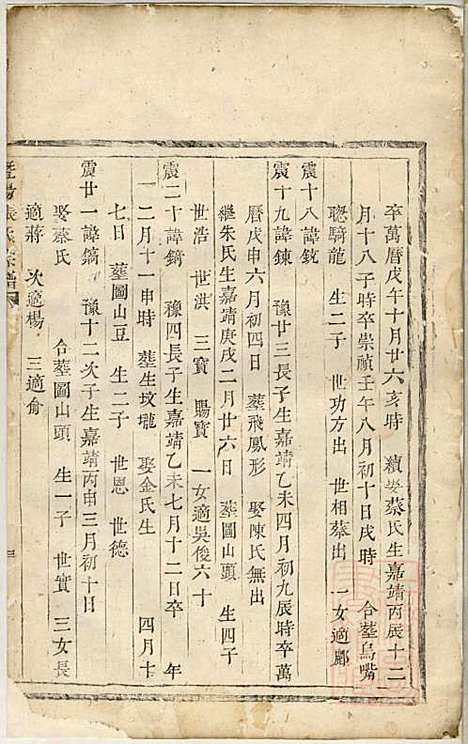 卒萬曆戊午十月廿六亥時 續娶蔡氏生嘉靖丙辰十二
月十八子時卒崇禎壬午八月初十日戌時 合塟烏嘴
騎龍 生二子 世功方出 世相蔡出 一女適酈
震十八諱鋭
震十九諱鍊 豫廿三長子生嘉靖乙未四月初九辰時卒萬
曆戊申六月初四日 塟飛鳳形 娶陳氏無出
繼朱氏生嘉靖庚戌二月廿六日 塟圖山頭 生四子
世浩 世洪 三寳 賜寳 一女適吳俊六十
震二十諱鏑 豫四長子生嘉靖乙未七月十二日卒 年
一二月十一申時 塟生坟壠 娶金氏生 四月十
七日 塟圖山豆 生二子 世恩 世德
震廿一諱鏑 豫十二次子生嘉靖丙申三月初十日
娶蔡氏 合塟圖山頭 生一子 世實 三女長
適蔣 次適楊 三適俞
暨陽 宗譜